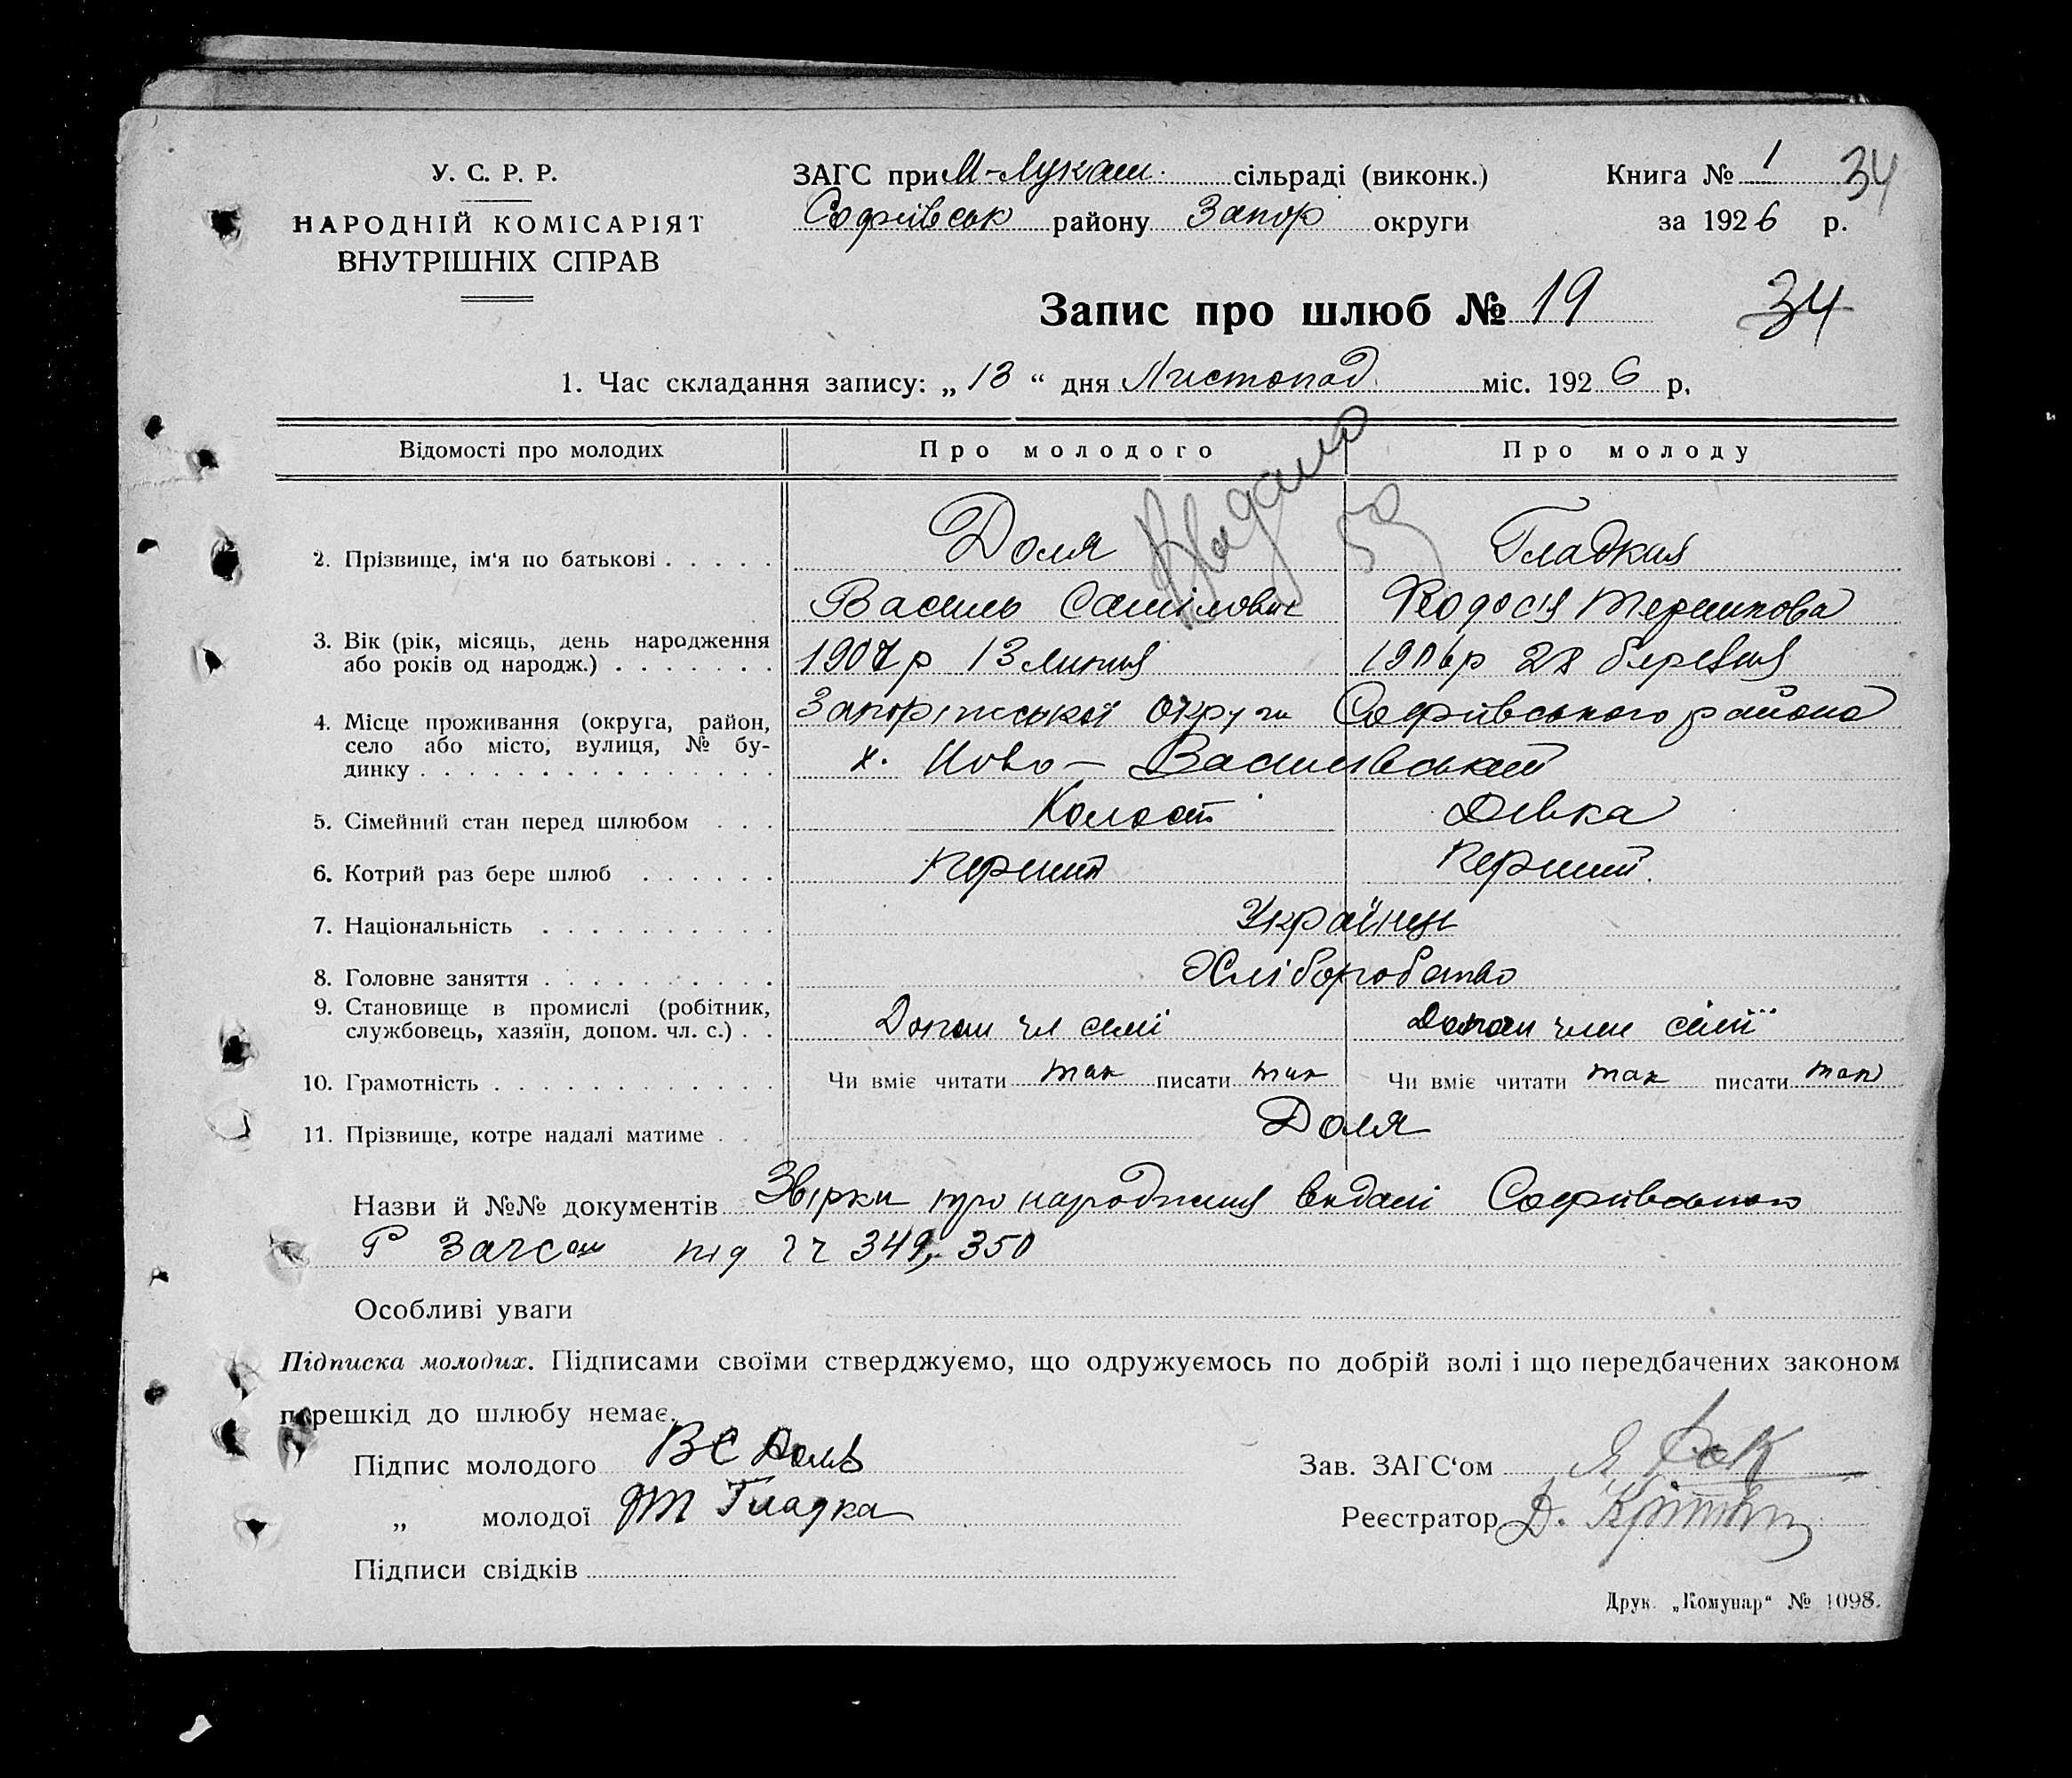 У. С. Р. Р.
НАРОДНІЙ КОМІСАРІЯТ
ВНУТРІШНІХ СПРАВ
ЗАГС при М-Лукаш. сільраді (виконк.)
Софиівськ району Запор округи
Книга № 1 34
за 1926 р.
Запис про шлюб № 19 34
1. Час складання запису: „ 13 “ дня Листопад міс. 1926 р.
Відомості про молодих Про молодого Про молоду
2. Прізвище, ім'я по батькові Доля Гладкия
Василь Самілович Федосія
3. Вік (рік, місяць, день народження
або років од народж.) 1907р 13 Липня 1906р 28 березня
4. Місце проживання (округа, район,
село або місто, вулиця, № бу-
динку Запоріжської округи Софиівського района
х. Ново-Василівський
5. Сімейний стан перед шлюбом Холост Дівка
6. Котрий раз бере шлюб перший перший.
7. Національність Українці
8. Головне заняття Хліборобство
9. Становище в промислі (робітник,
службовець, хазяїн, допом. чл. с.) Допом чл семї Допом член сімї
10. Грамотність Чи вміє читати так писати так Чи вміє читати так писати так
11. Прізвище, котре надалі матиме Доля
Назви й №№ документів про народження видані Софиівським
Р Загсом під 349, 350
Особливі уваги
Підписка молодих. Підписами своїми стверджуємо, що одружуємось по добрій волі і що передбачених законом
перешкід до шлюбу немає.
Підпис молодого ВС Доля
„ молодої ФТ Гладка
Підписи свідків
Зав. ЗАГС'ом
Реєстратор Д.
Друк. „Комунар“ № 1098.